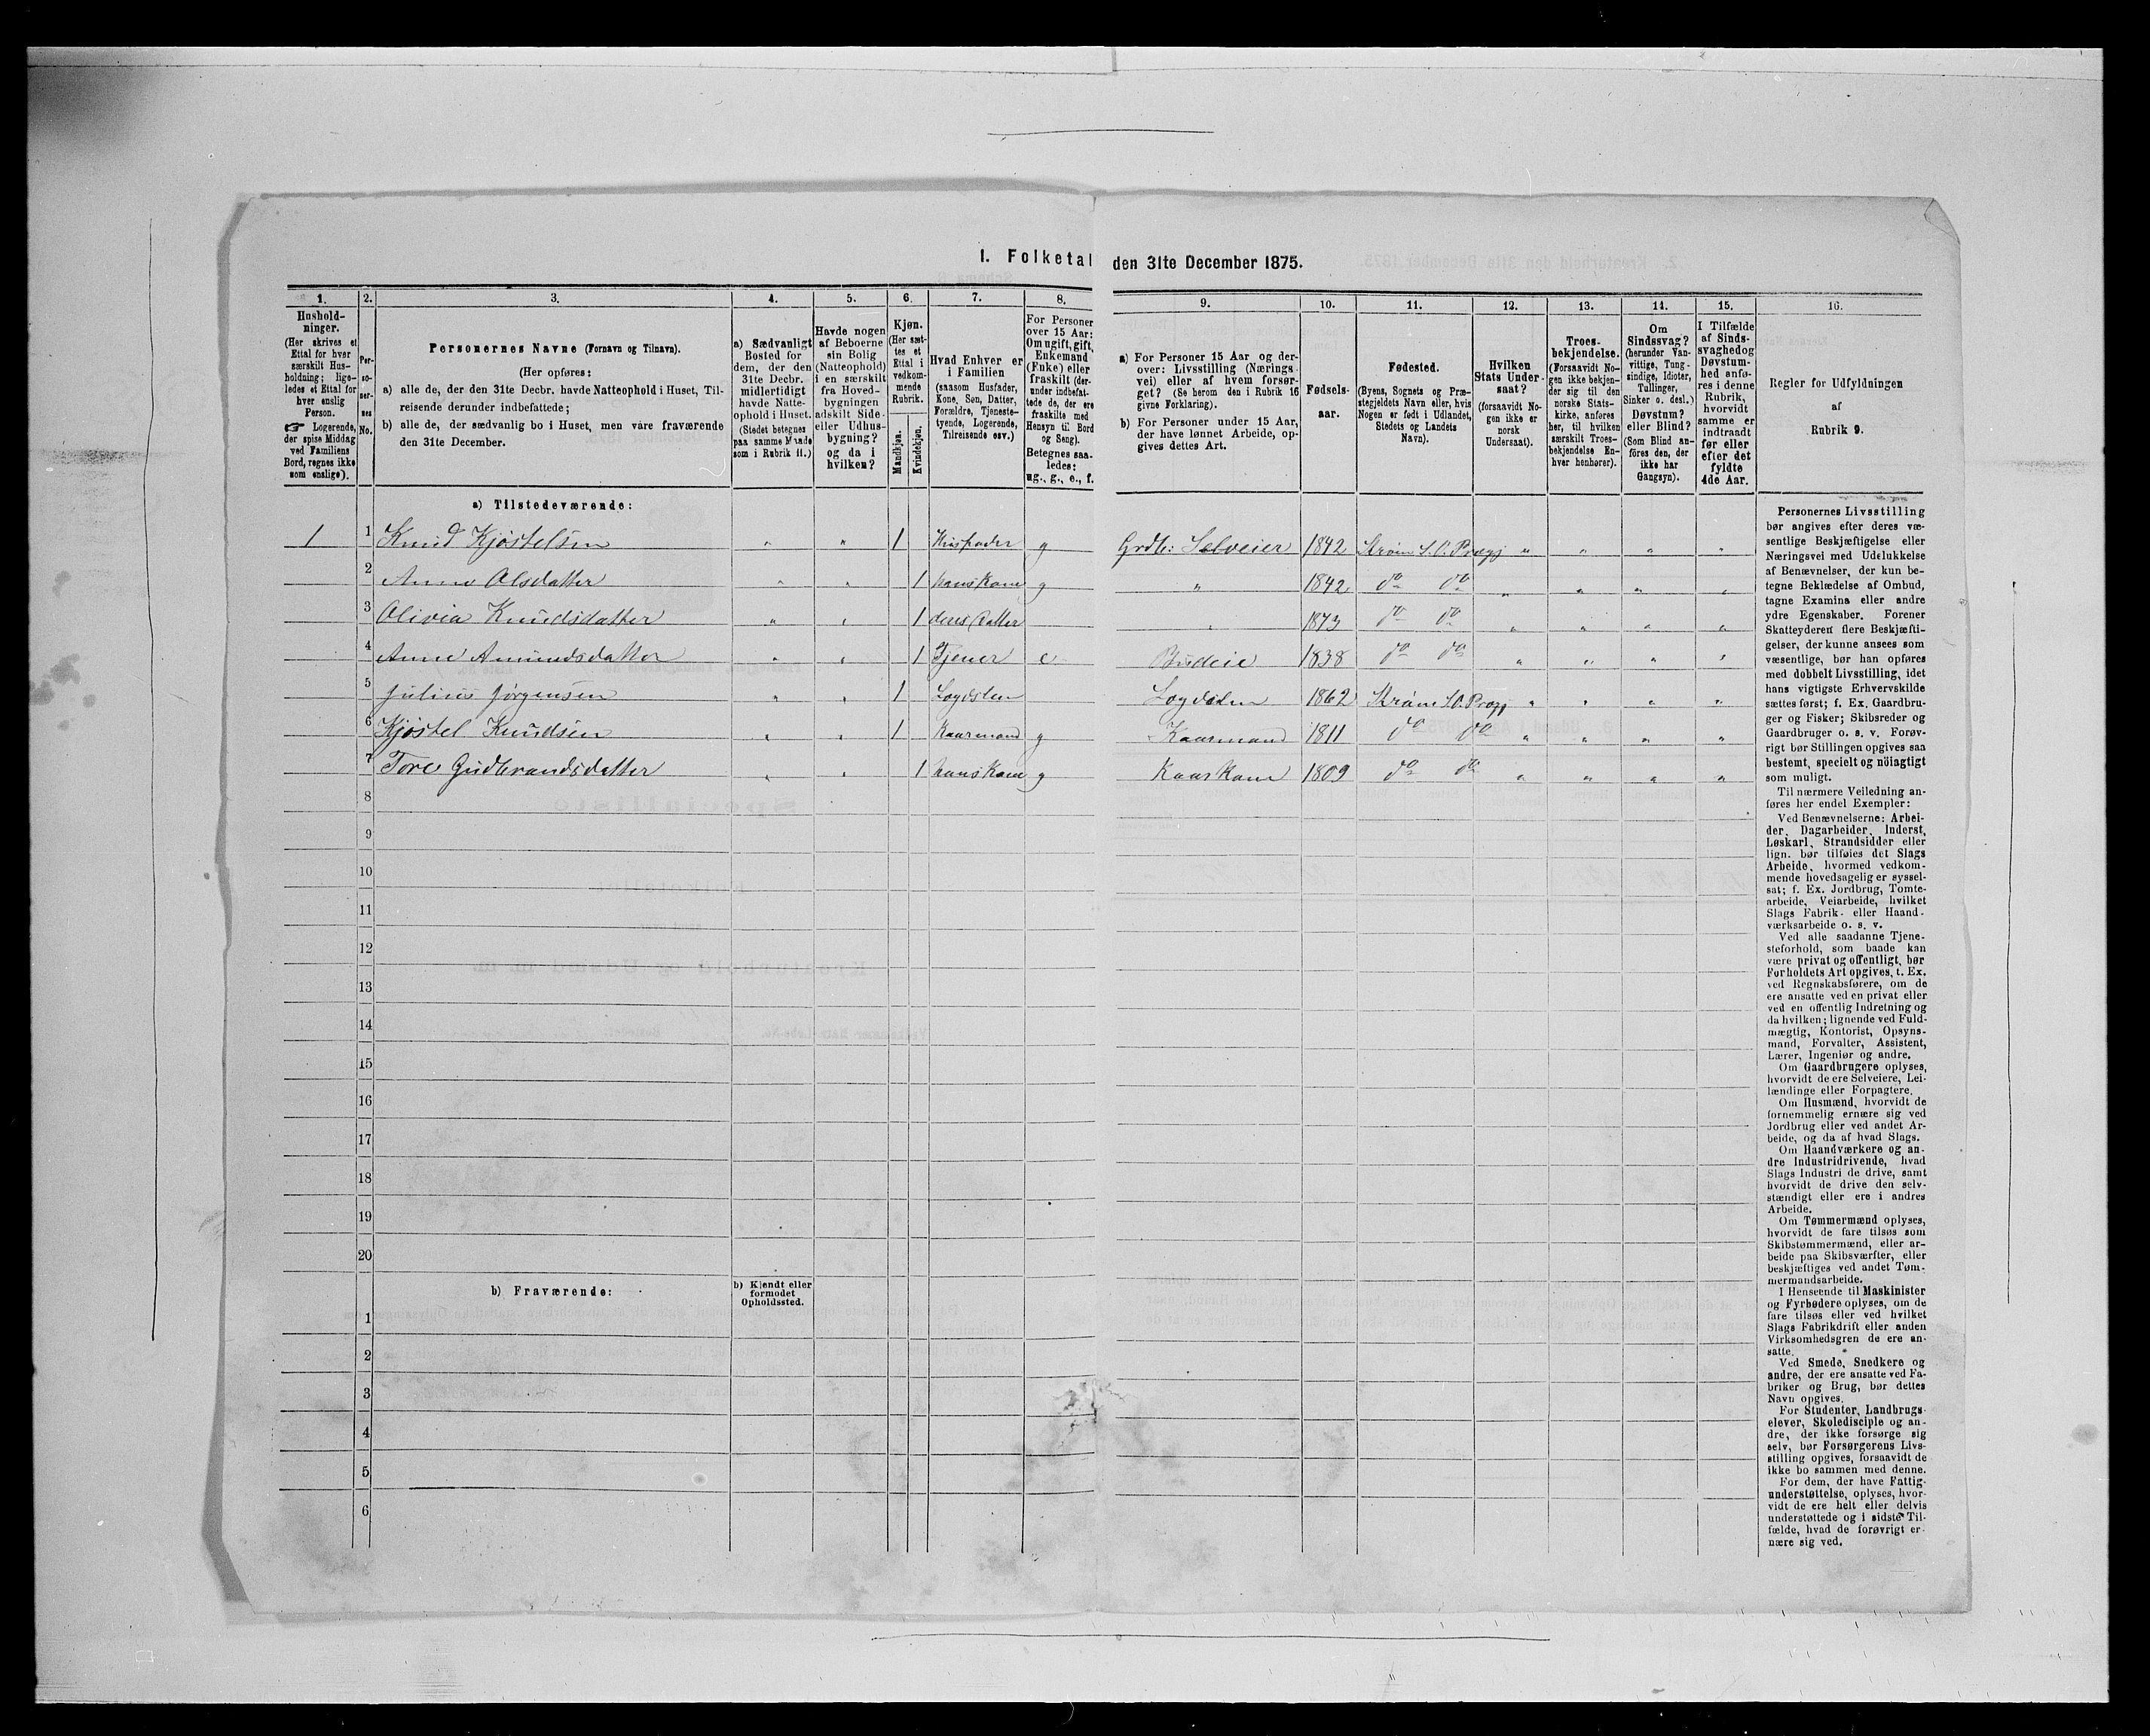 1. Folketal den 31te December 1875.
1. 2. 3. 4. 5. 6. 7. 8. 9. 10. 11. 12. 13. 14. 15. 16.
Hushold-
ninger.
(Her skrives et
Ettal for hver
særskilt Hus-
holdning; lige-
ledes et Ettal for
hver enslig
Person.
☞ Logerende,
der spise Middag
ved Familiens
Bord, regnes ikke
som enslige).
Per-
so-
ner-
nes
No.
Personernes Navne (Fornavn og Tilnavn).
(Her opføres:
a) alle de, der den 31te Decbr. havde Natteophold i Huset, Til-
reisende derunder indbefattede;
b) alle de, der sædvanlig bo i Huset, men vare fraværende
den 31te December.
a) Sædvanligt
Bosted for
dem, der den
31te Decbr.
midlertidigt
havde Natte-
ophold i Huset.
(Stedet betegnes
paa samme Maade
som i Rubrik 11.)
Havde nogen
af Beboerne
sin Bolig
(Natteophold)
i en særskilt
fra Hoved-
bygningen
adskilt Side-
eller Udhus-
bygning?
og da i
hvilken?
Kjøn.
(Her sæt-
tes et
Ettal i
vedkom-
mende
Rubrik.
Mandkjøn.
Kvindekjøn.
Hvad Enhver er
i Familien
(saasom Husfader,
Kone, Søn, Datter,
Forældre, Tjeneste-
tyende, Logerende,
Tilreisende osv.)
For Personer
over 15 Aar:
Om ugift, gift,
Enkemand
(Enke) eller
fraskilt (der-
under indbefat-
tede de, der ere
fraskilte med
Hensyn til Bord
og Seng).
Betegnes saa-
ledes:
ug., g., e., f.
a) For Personer 15 Aar og der-
over: Livsstilling (Nærings-
vei) eller af hvem forsør-
get? (Se herom den i Rubrik 16
givne Forklaring).
b) For Personer under 15 Aar,
der have lønnet Arbeide, op-
gives dettes Art.
Fødsels-
aar.
Fødested.
(Byens, Sognets og Præ-
stegjeldets Navn eller, hvis
Nogen er født i Udlandet,
Stedets og Landets
Navn).
Hvilken
Stats Under-
saat?
(forsaavidt No-
gen ikke er
norsk
Undersaat).
Troes-
bekjendelse.
(Forsaavidt No-
gen ikke bekjen-
der sig til den
norske Stats-
kirke, anføres
her, til hvilken
særskilt Troes-
bekjendelse En-
hver henhører).
Om
Sindssvag?
(herunder Van-
vittige, Tung-
sindige, Idioter,
Tullinger,
Sinker o. desl.)
Døvstum?
eller Blind?
(Som Blind an-
föres den, der
ikke har
Gangsyn).
I Tilfælde
af Sinds-
svaghed og
Døvstum-
hed anfø-
res i denne
Rubrik,
hvorvidt
samme er
indtraadt
før eller
efter det
fyldte
4de Aar.
Regler for Udfyldningen
af
Rubrik 9.
a) Tilstedeværende:
1 1 Knud Kjøstelsen " " 1 Husfader g Grdb: Selveier 1842 Strøm S. O. Præsgj " " " "
2 Anne Olsdatter " " 1 hans Kone g " 1842 do do " " " "
3 Olivia Knudsdatter " " 1 deres Datter " 1873 do do " " " "
4 Anne Amundsdatter " " 1 Tjener e Budeie 1838 do do " " " "
5 Julius Jørgensen " " 1 Lægdslem Lægdslem 1862 Strøm S. O. Præsgj " " " "
6 Kjøstel Knudsen " " 1 Kaarmand g Kaarmand 1811 do do " " " "
7 Tore Gudbrandsdatter " " 1 hans Kone g Kaarkone 1809 do do " " " "
8
9
10
11
12
13
14
15
16
17
18
19
20
b) Fraværende:
b) Kjendt eller
formodet
Opholdssted.
1
2
3
4
5
6
Personernes Livsstilling
bør angives efter deres væ-
sentlige Beskjæftigelse eller
Næringsvei med Udelukkelse
af Benævnelser, der kun be-
tegne Beklædelse af Ombud,
tagne Examina eller andre
ydre Egenskaber. Forener
Skatteyderen flere Beskjæfti-
gelser, der kunne ansees som
væsentlige, bør han opføres
med dobbelt Livsstilling, idet
hans vigtigste Erhvervskilde
sættes først; f. Ex. Gaardbru-
ger og Fisker; Skibsreder og
Gaardbruger o. s. v. Forøv-
rigt bør Stillingen opgives saa
bestemt, specielt og nöiagtigt
som muligt.
Til nærmere Veiledning an-
føres her endel Exempler:
Ved Benævnelserne: Arbei-
der, Dagarbeider, Inderst,
Løskarl, Strandsidder eller
lign. bør tilføies det Slags
Arbeide, hvormed vedkom-
mende hovedsagelig er syssel-
sat; f. Ex. Jordbrug, Tomte-
arbeide, Veiarbeide, hvilket
Slags Fabrik- eller Haand-
værksarbeide o. s. v.
Ved alle saadanne Tjene-
steforhold, som baade kan
være privat og offentligt, bør
Forholdets Art opgives, t. Ex.
ved Regnskabsførere, om de
ere ansatte ved en privat eller
ved en offentlig Indretning og
da hvilken; lignende ved Fuld-
mægtig, Kontorist, Opsyns-
mand, Forvalter, Assistent,
Lærer, Ingeniør og andre.
Om Gaardbrugere oplyses,
hvorvidt de ere Selveiere, Lei-
lændinge eller Forpagtere.
Om Husmænd, hvorvidt de
fornemmelig ernære sig ved
Jordbrug eller ved andet Ar-
beide, og da af hvad Slags.
Om Haandværkere og an-
dre Industridrivende, hvad
Slags Industri de drive, samt
hvorvidt de drive den selv-
stændigt eller ere i andres
Arbeide.
Om Tømmermænd oplyses,
hvorvidt de fare tilsøs som
Skibstømmermænd, eller ar-
beide paa Skibsværfter, eller
beskjæftiges ved andet Tøm-
mermandsarbeide.
I Henseende til Maskinister
og Fyrbødere oplyses, om de
fare tilsøs eller ved hvilket
Slags Fabrikdrift eller anden
Virksomhedsgren de ere an-
satte.
Ved Smede, Snedkere og
andre, der ere ansatte ved Fa-
briker og Brug, bør dettes
Navn opgives.
For Studenter, Landbrugs-
elever, Skoledisciple og an-
dre, der ikke forsørge sig
selv, bør Forsørgerens Livs-
stilling opgives, forsaavidt de
ikke bo sammen med denne.
For dem, der have Fattig-
understøttelse, oplyses, hvor-
vidt de ere helt eller delvis
understøttede og i sidste Til-
fælde, hvad de forøvrigt er-
nære sig ved.